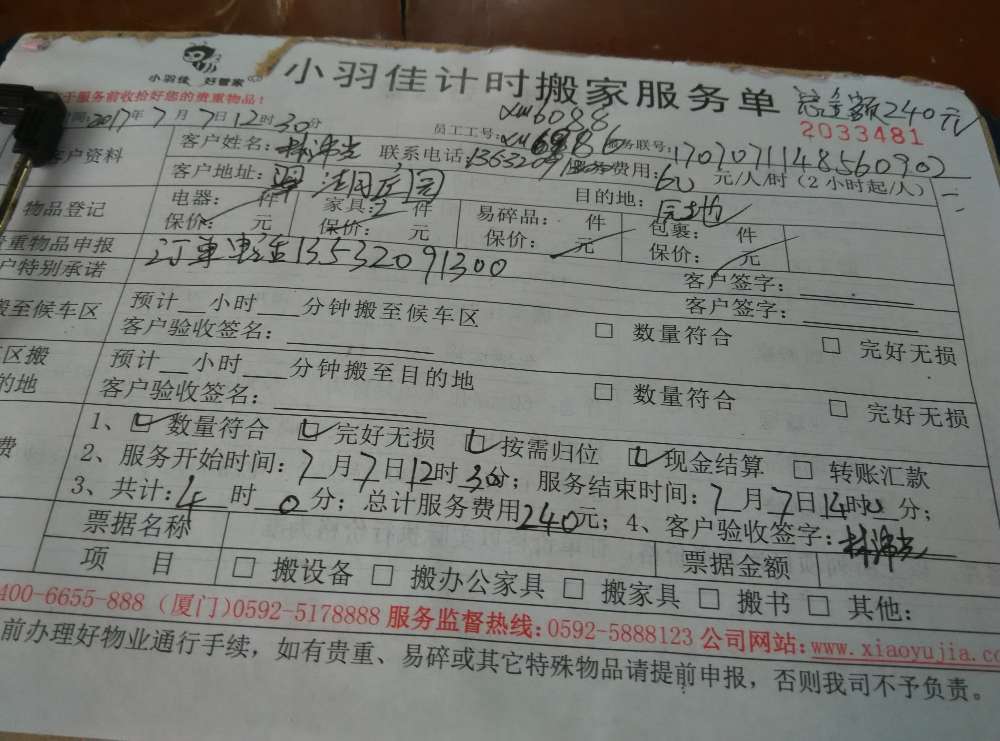 小羽佳 好管家
小羽佳计时搬家服务单 总金额240元
于服务前收拾好您的贵重物品！
2033481
间：2017年7月7日12时30分 员工工号：xm6088
客户资料 客户姓名： 联系电话： 服务联号：1707071148560902
客户地址： 服务费用：60元/人/时（2小时起/人）
目的地：
物品登记 电器： 件 家具：2件 易碎品： 件 包裹： 件
保价： 元 保价： 元 保价： 元 保价： 元
贵重物品申报 订单电话13532091300 客户签字：
户特别承诺 客户签字：
搬至候车区 预计 小时 分钟搬至候车区 □ 数量符合 □ 完好无损
客户验收签名：
区搬 预计 小时 分钟搬至目的地 □ 数量符合 □ 完好无损
的地 客户验收签名：
1、☑数量符合 ☑完好无损 ☑按需归位 ☑现金结算 □ 转账汇款
费 2、服务开始时间：7月7日12时30分；服务结束时间：7月7日14时0分；
3、共计：4时0分；总计服务费用240元；4、客户验收签字：
票据名称 票据金额
项 目 □ 搬设备 □ 搬办公家具 □ 搬家具 □ 搬书 □ 其他：
400-6655-888（厦门）0592-5178888 服务监督热线：0592-5888123 公司网站：www.xiaoyujia.co
前办理好物业通行手续，如有贵重、易碎或其它特殊物品请提前申报，否则我司不予负责。